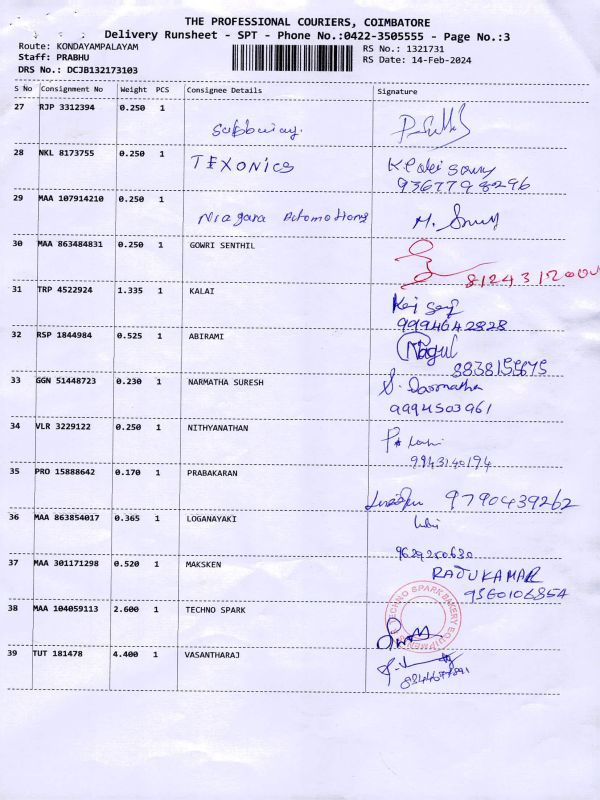 THE PROFESSIONAL COURIERS, COIMBATORE
Delivery Runsheet - SPT - Phone No.:0422-3505555 - Page No.:3
Route: KONDAYAMPALAYAM RS No.: 1321731
Staff: PRABHU RS Date: 14-Feb-2024
DRS No.: DCJB132173103
S No Consignment No Weight PCS Consignee Details Signature
27 RJP 3312394 0.250 1
28 NKL 8173755 0.250 1 TEXONICS
9367798296
29 MAA 107914210 0.250 1
Niagara Automations
30 MAA 863484831 0.250 1 GOWRI SENTHIL
31 TRP 4522924 1.335 1 KALAI
9994642828
32 RSP 1844984 0.525 1 ABIRAMI Nagul
33 GGN 51448723 0.230 1 NARMATHA SURESH
9994503961
34 VLR 3229122 0.250 1 NITHYANATHAN
9943140194
35 PRO 15888642 0.170 1 PRABAKARAN
9790439262
36 MAA 863854017 0.365 1 LOGANAYAKI
9629250630
37 MAA 301171298 0.520 1 MAKSKEN RAJUKAMAR
9360106854
38 MAA 104059113 2.600 1 TECHNO SPARK TECHNO SPARK BAKERY EQUIPMENTS
39 TUT 181478 4.400 1 VASANTHARAJ